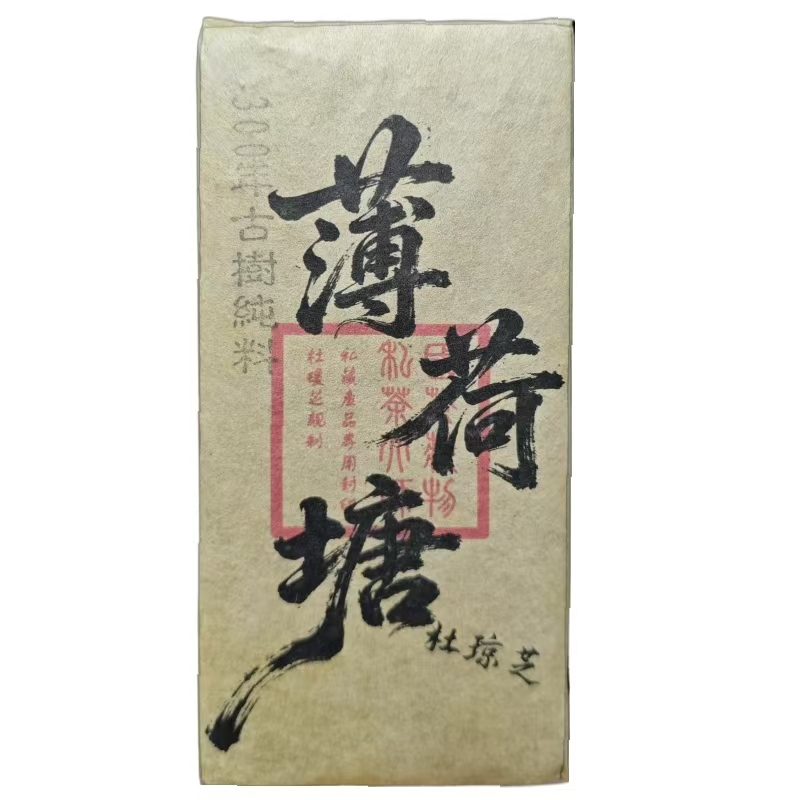 300年古樹純料
薄荷塘
私茶
私藏產品專用封印
杜瓊芝親制
杜琼芝